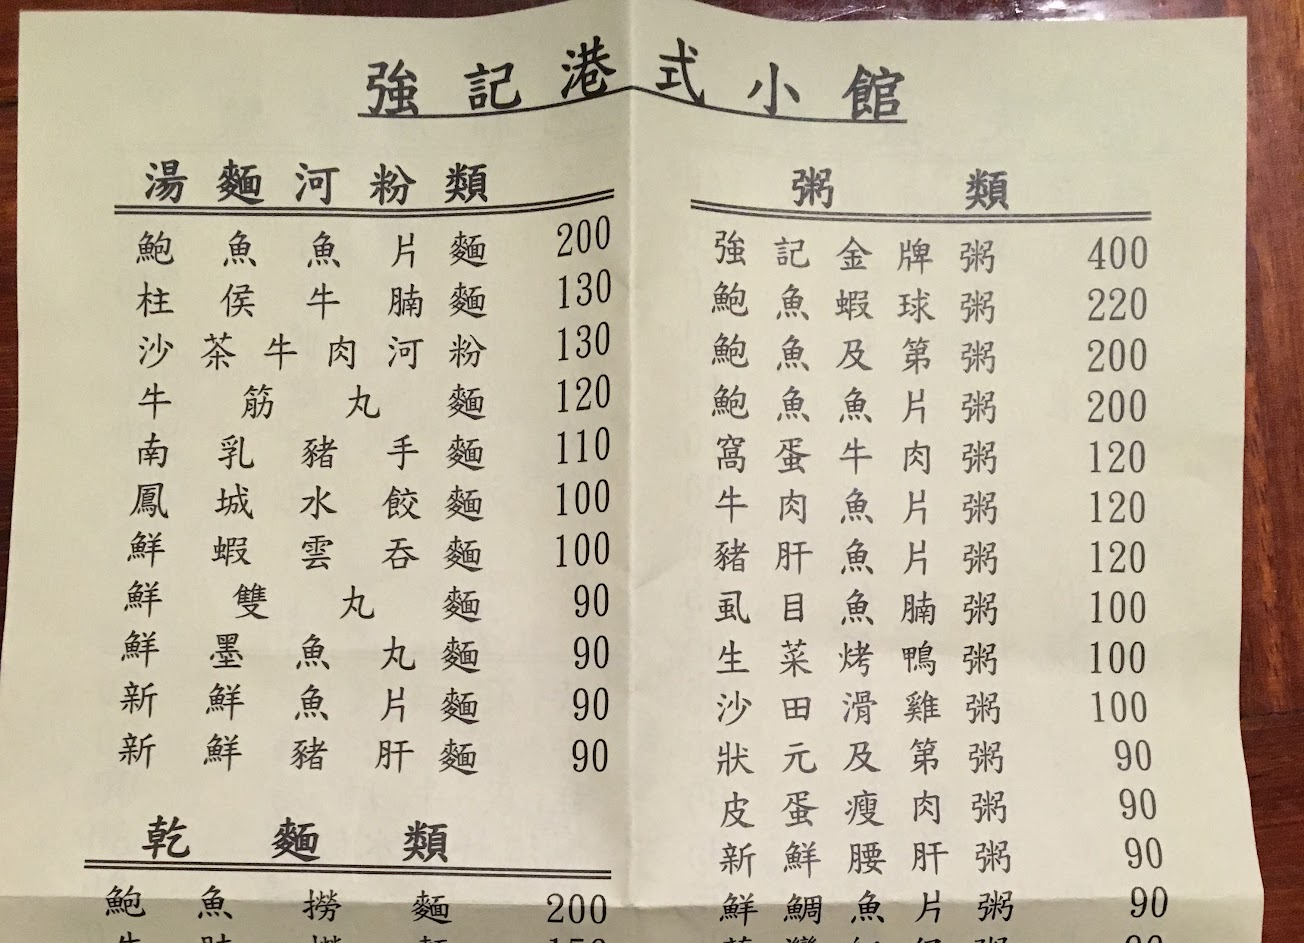 強記港式小館
湯麵河粉類
鮑魚魚片麵 200
柱侯牛腩麵 130
沙茶牛肉河粉 130
牛筋丸麵 120
南乳豬手麵 110
鳳城水餃麵 100
鮮蝦雲吞麵 100
鮮雙丸麵 90
鮮墨魚丸麵 90
新鮮魚片麵 90
新鮮豬肝麵 90
乾麵類
鮑魚撈麵 200
粥類
強記金牌粥 400
鮑魚蝦球粥 220
鮑魚及第粥 200
鮑魚魚片粥 200
窩蛋牛肉粥 120
牛肉魚片粥 120
豬肝魚片粥 120
虱目魚腩粥 100
生菜烤鴨粥 100
沙田滑雞粥 100
狀元及第粥 90
皮蛋瘦肉粥 90
新鮮腰肝粥 90
鮮鯛魚片粥 90